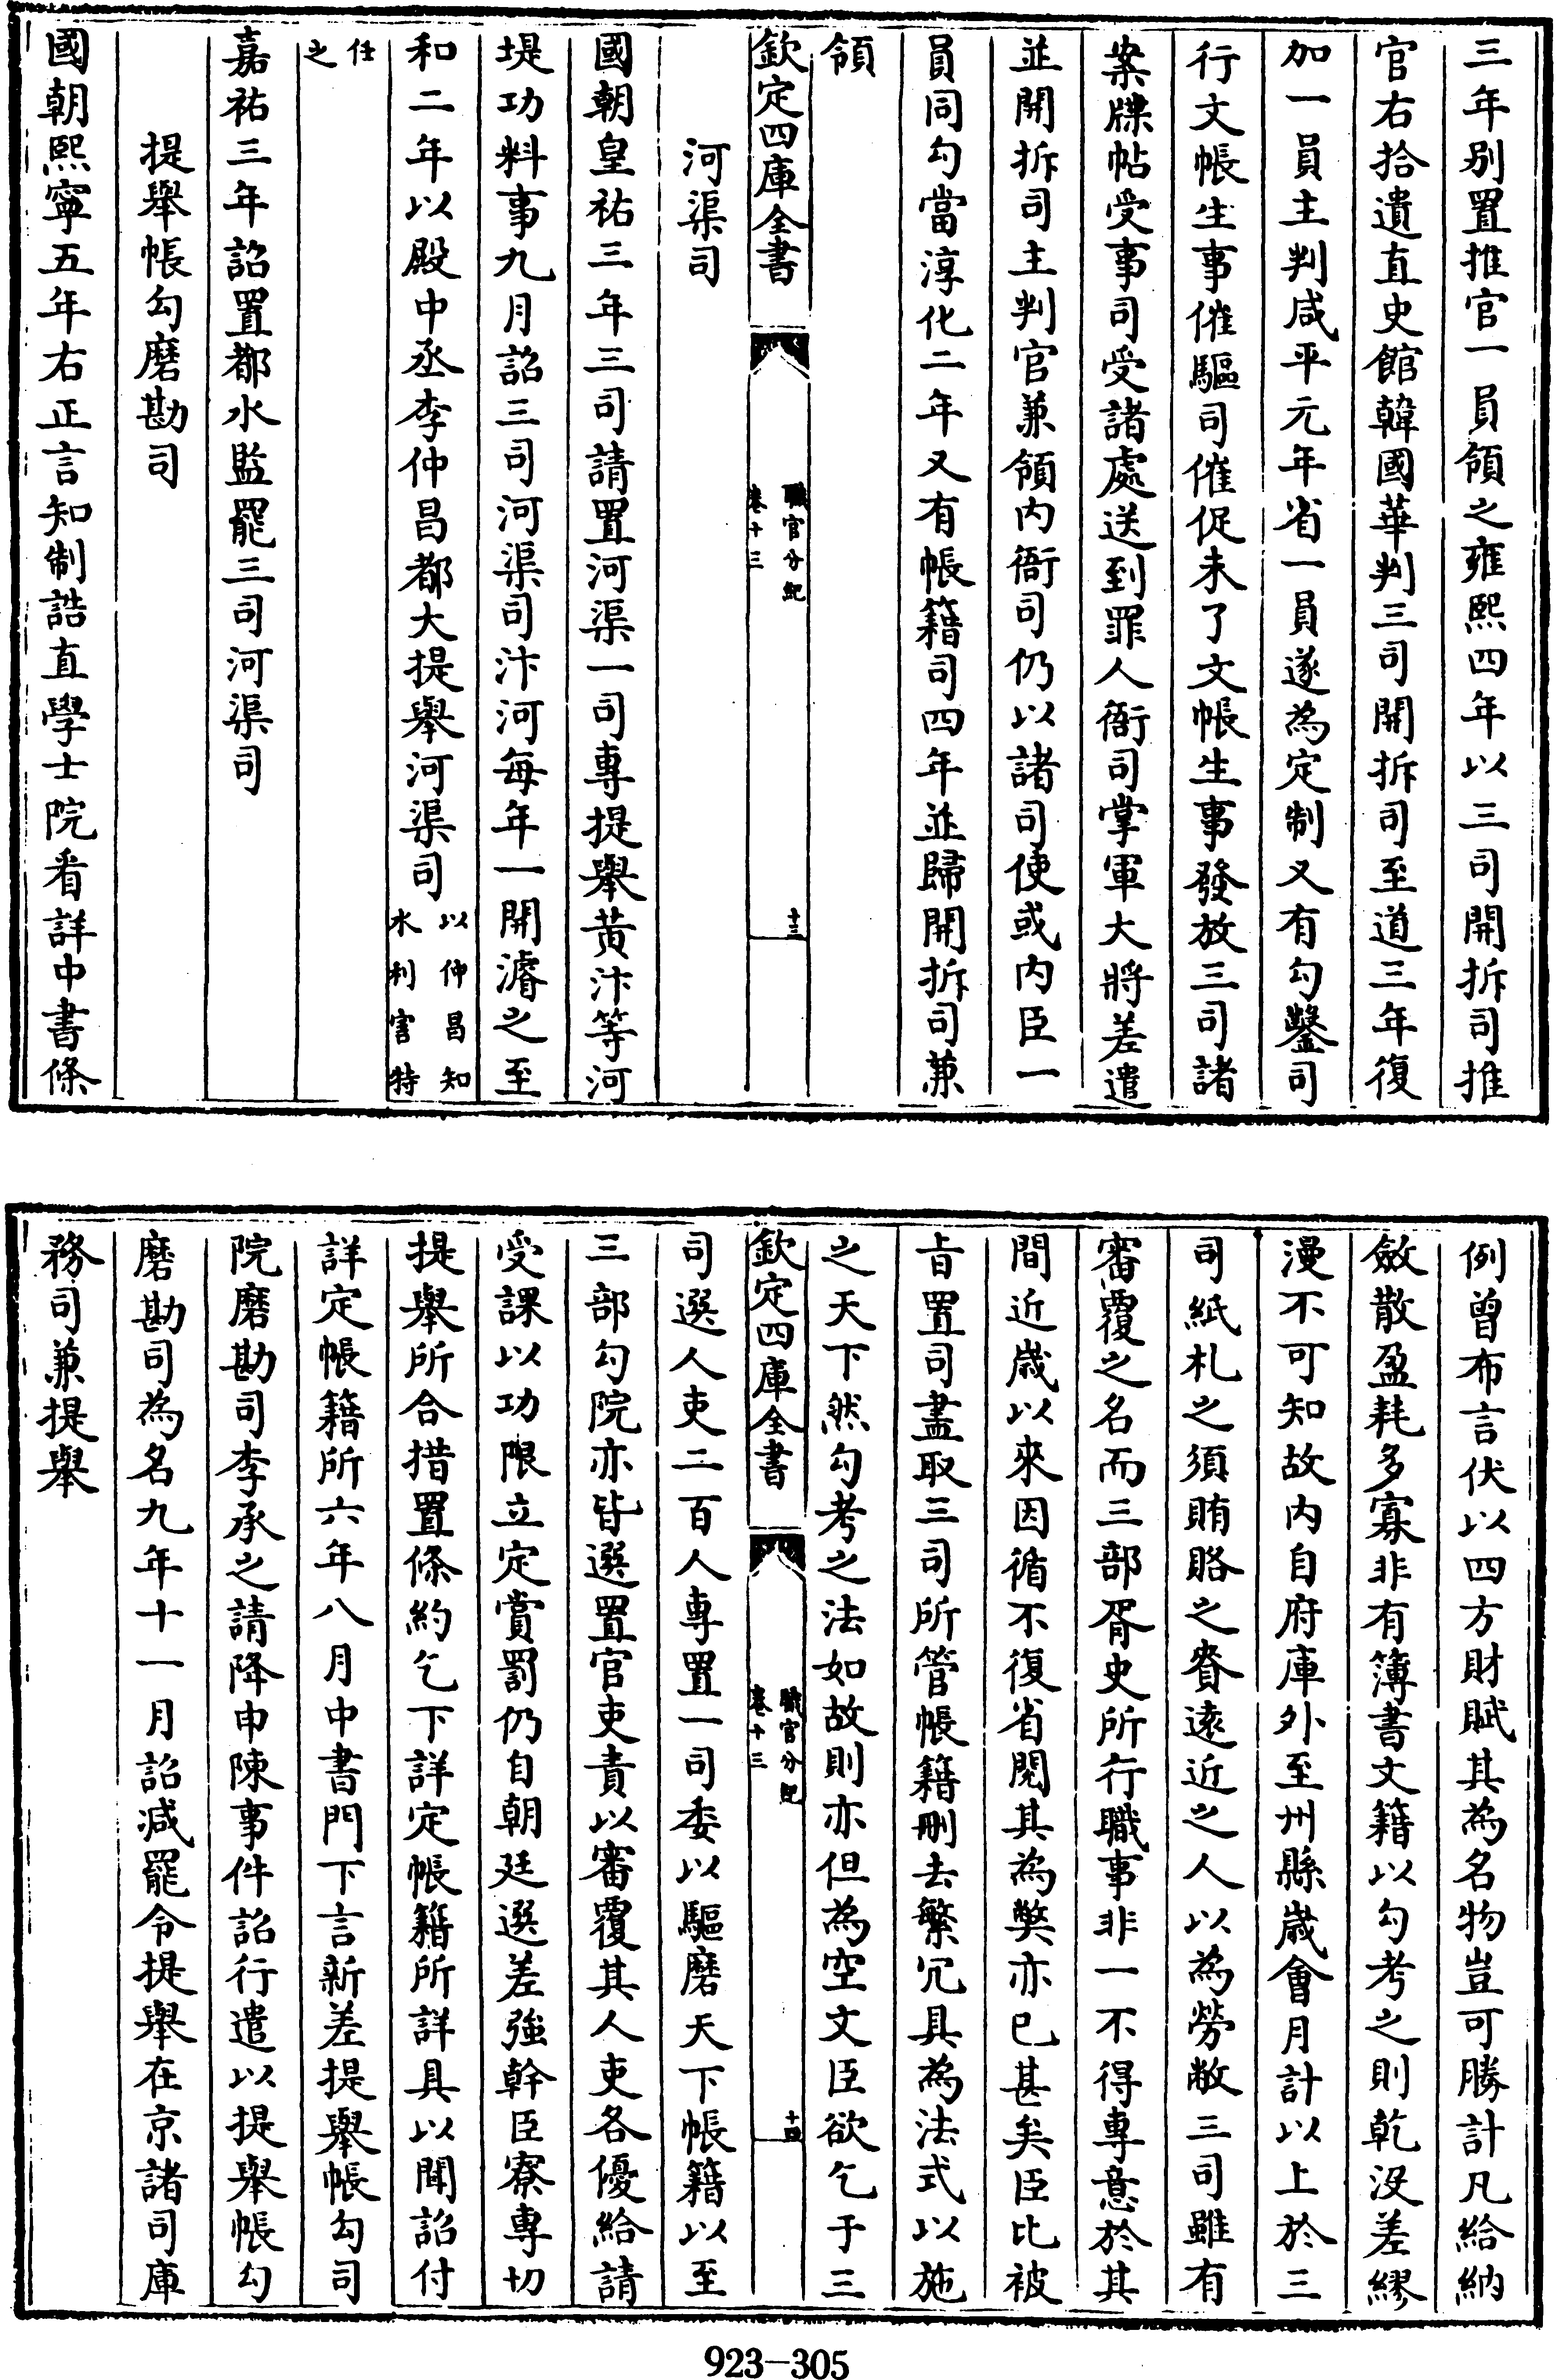 三年別置推官一員領之雍熙四年以三司開拆司推
官右拾遺直史館韓國華判三司開拆司至道三年復
加一員主判咸平元年省一員遂為定制又有勾鑿司
行文帳生事催驅司催促未了文帳生事發放三司諸
案牒帖受事司受諸處送到罪人衙司掌軍大將差遣
並開拆司主判官兼領内衙司仍以諸司使或内臣一
員同勾當淳化二年又有帳籍司四年並歸開拆司兼
領
欽定四庫全書
職官分紀
卷十三
十三
河渠司
國朝皇祐三年三司請置河渠一司專提舉黄汴等河
堤功料事九月詔三司河渠司汴河每年一開濬之至
和二年以殿中丞李仲昌都大提舉河渠司以仲昌知
水利害特
任
之
嘉祐三年詔置都水監罷三司河渠司
提舉帳勾磨勘司
國朝熙寧五年右正言知制誥直學士院看詳中書條
例曾布言伏以四方財賦其為名物豈可勝計凡給納
斂散盈耗多寡非有簿書文籍以勾考之則乾沒差繆
漫不可知故内自府庫外至州縣歲會月計以上於三
司紙札之須賄賂之賫遠近之人以為勞敝三司雖有
審覆之名而三部胥史所行職事非一不得專意於其
間近歲以來因循不復省閲其為獘亦已甚矣臣比被
旨置司盡取三司所管帳籍刪去繁冗具為法式以施
之天下然勾考之法如故則亦但為空文臣欲乞于三
欽定四庫全書
職官分紀
卷十三
十四
司選人吏二百人專置一司委以驅磨天下帳籍以至
三部勾院亦皆選置官吏責以審覆其人吏各優給請
受課以功限立定賞罰仍自朝廷選差強幹臣寮專切
提舉所合措置條約乞下詳定帳籍所詳具以聞詔付
詳定帳籍所六年八月中書門下言新差提舉帳勾司
院磨勘司李承之請降申陳事件詔行遣以提舉帳勾
磨勘司為名九年十一月詔減罷令提舉在京諸司庫
務司兼提舉
923-305